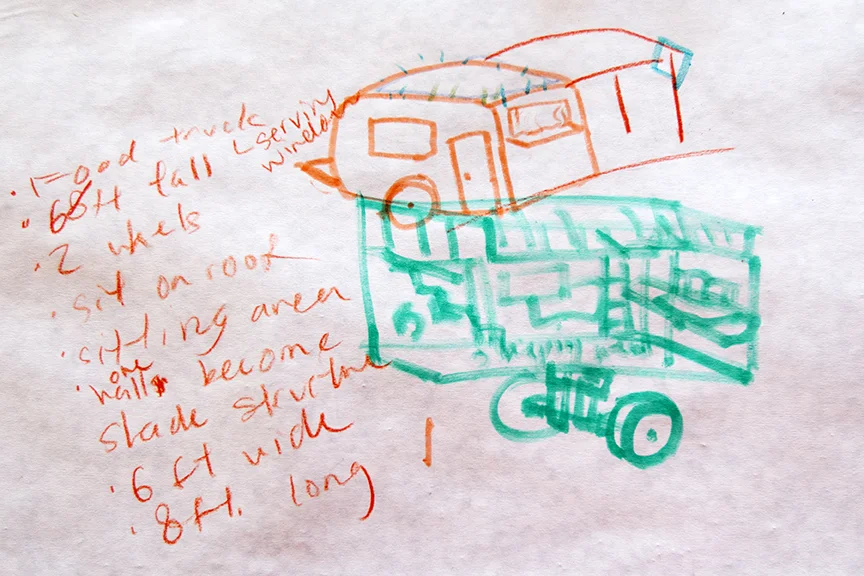 · Food truck
serving
window
· 68ft tall
· 2 wheels
· sit on roof
· sitting area
one
· wall become
shade structure
· 6 ft wide
· 8ft. long